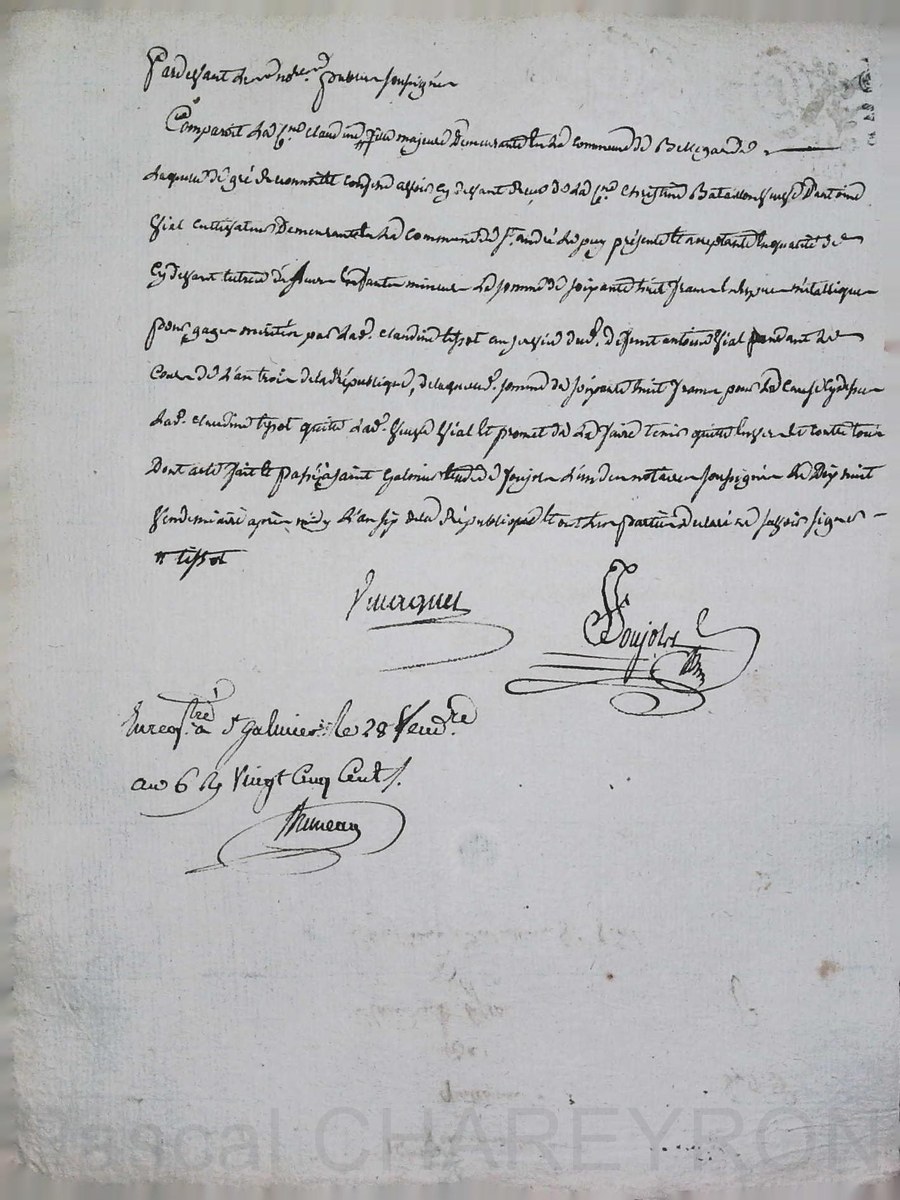 Pardevant les nore.s publics soussignés
Comparoit La Cne. claudine # fille majeure Demeurante En La commune de Bellegarde
Laquelle de gré a reconnu Et confessé avoir cy devant reçu de La Cne. christine Bataillon veuve D'antoine
Vial cultivateur Demeurante En La Commune de St. André Le puy présente Et acceptante En qualité de
cy devant tutrice de Leurs Enfants mineurs La somme de soixante huit francs En Espèce métallique
pour gages mérités par Lad. claudine tissot au service dud. defunt antoine Vial pendant Le
Cours de L'an trois de la République, de laquelle somme de soixante huit francs pour La Cause cy dessus
Lad. claudine tissot quitte Lad. veuve Vial Et promet de La faire tenir quitte Envers Et contre tous
Dont acte fait Et passé à saint Galmier Etude de Soujol L'un des notaires soussignés Le Dix huit
Vendemiaire après midy L'an six de la République Et ont Les parties declaré ne savoir signer
# tissot
Soujol
Enregistré à St Galmier le 28 Vend.re
an 6 R Vingt Cinq Cent.s
Pascal CHAREYRON